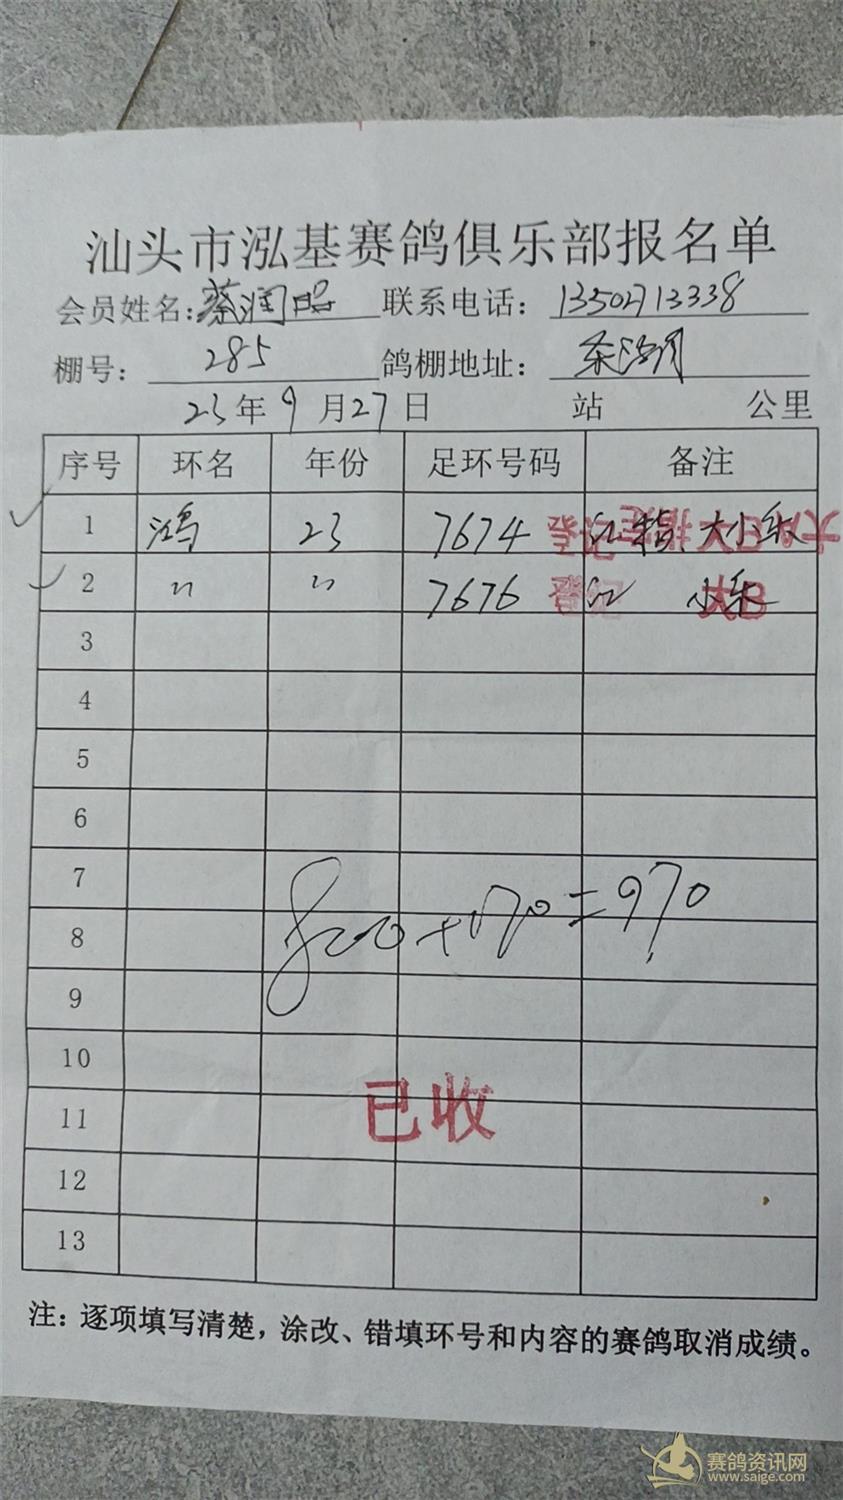 汕头市泓基赛鸽俱乐部报名单
会员姓名:蔡润昭 联系电话:13502713338
棚号: 285 鸽棚地址:
23年9月27日 站 公里
序号 环名 年份 足环号码 备注
1 鸿 23 7674 大小乐
2 〃 〃 7676 小乐
3
4
5
6
7
8
800+170=970
9
10
11
已收
12
13
注:逐项填写清楚,涂改、错填环号和内容的赛鸽取消成绩。
赛鸽资讯网
www.saige.com